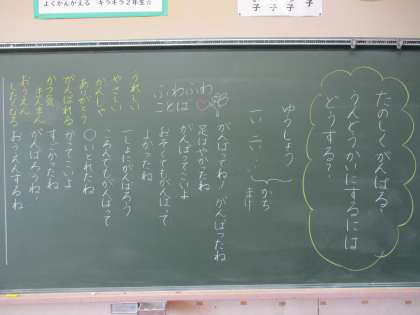 よくかんがえる キラキラ2年生☆
子
子
子
たのしくがんばる?
うんどうかいにするには
どうする?
ゆうしょう
一い 二い
かち
まけ
がんばってね! がんばったね
足はやかったね
がんばってこいよ
おそくてもがんばって
よかったね
いっしょにがんばろう
ころんでもがんばって
〇いとれたね
かってこいよ
すごかったね
がんばろうね!
おうえんするね
ふわふわ
ことば
うれしい
やさしい
かんしゃ
ありがとう
がんばれる
かつ気まんまん
おうえん
したくなる